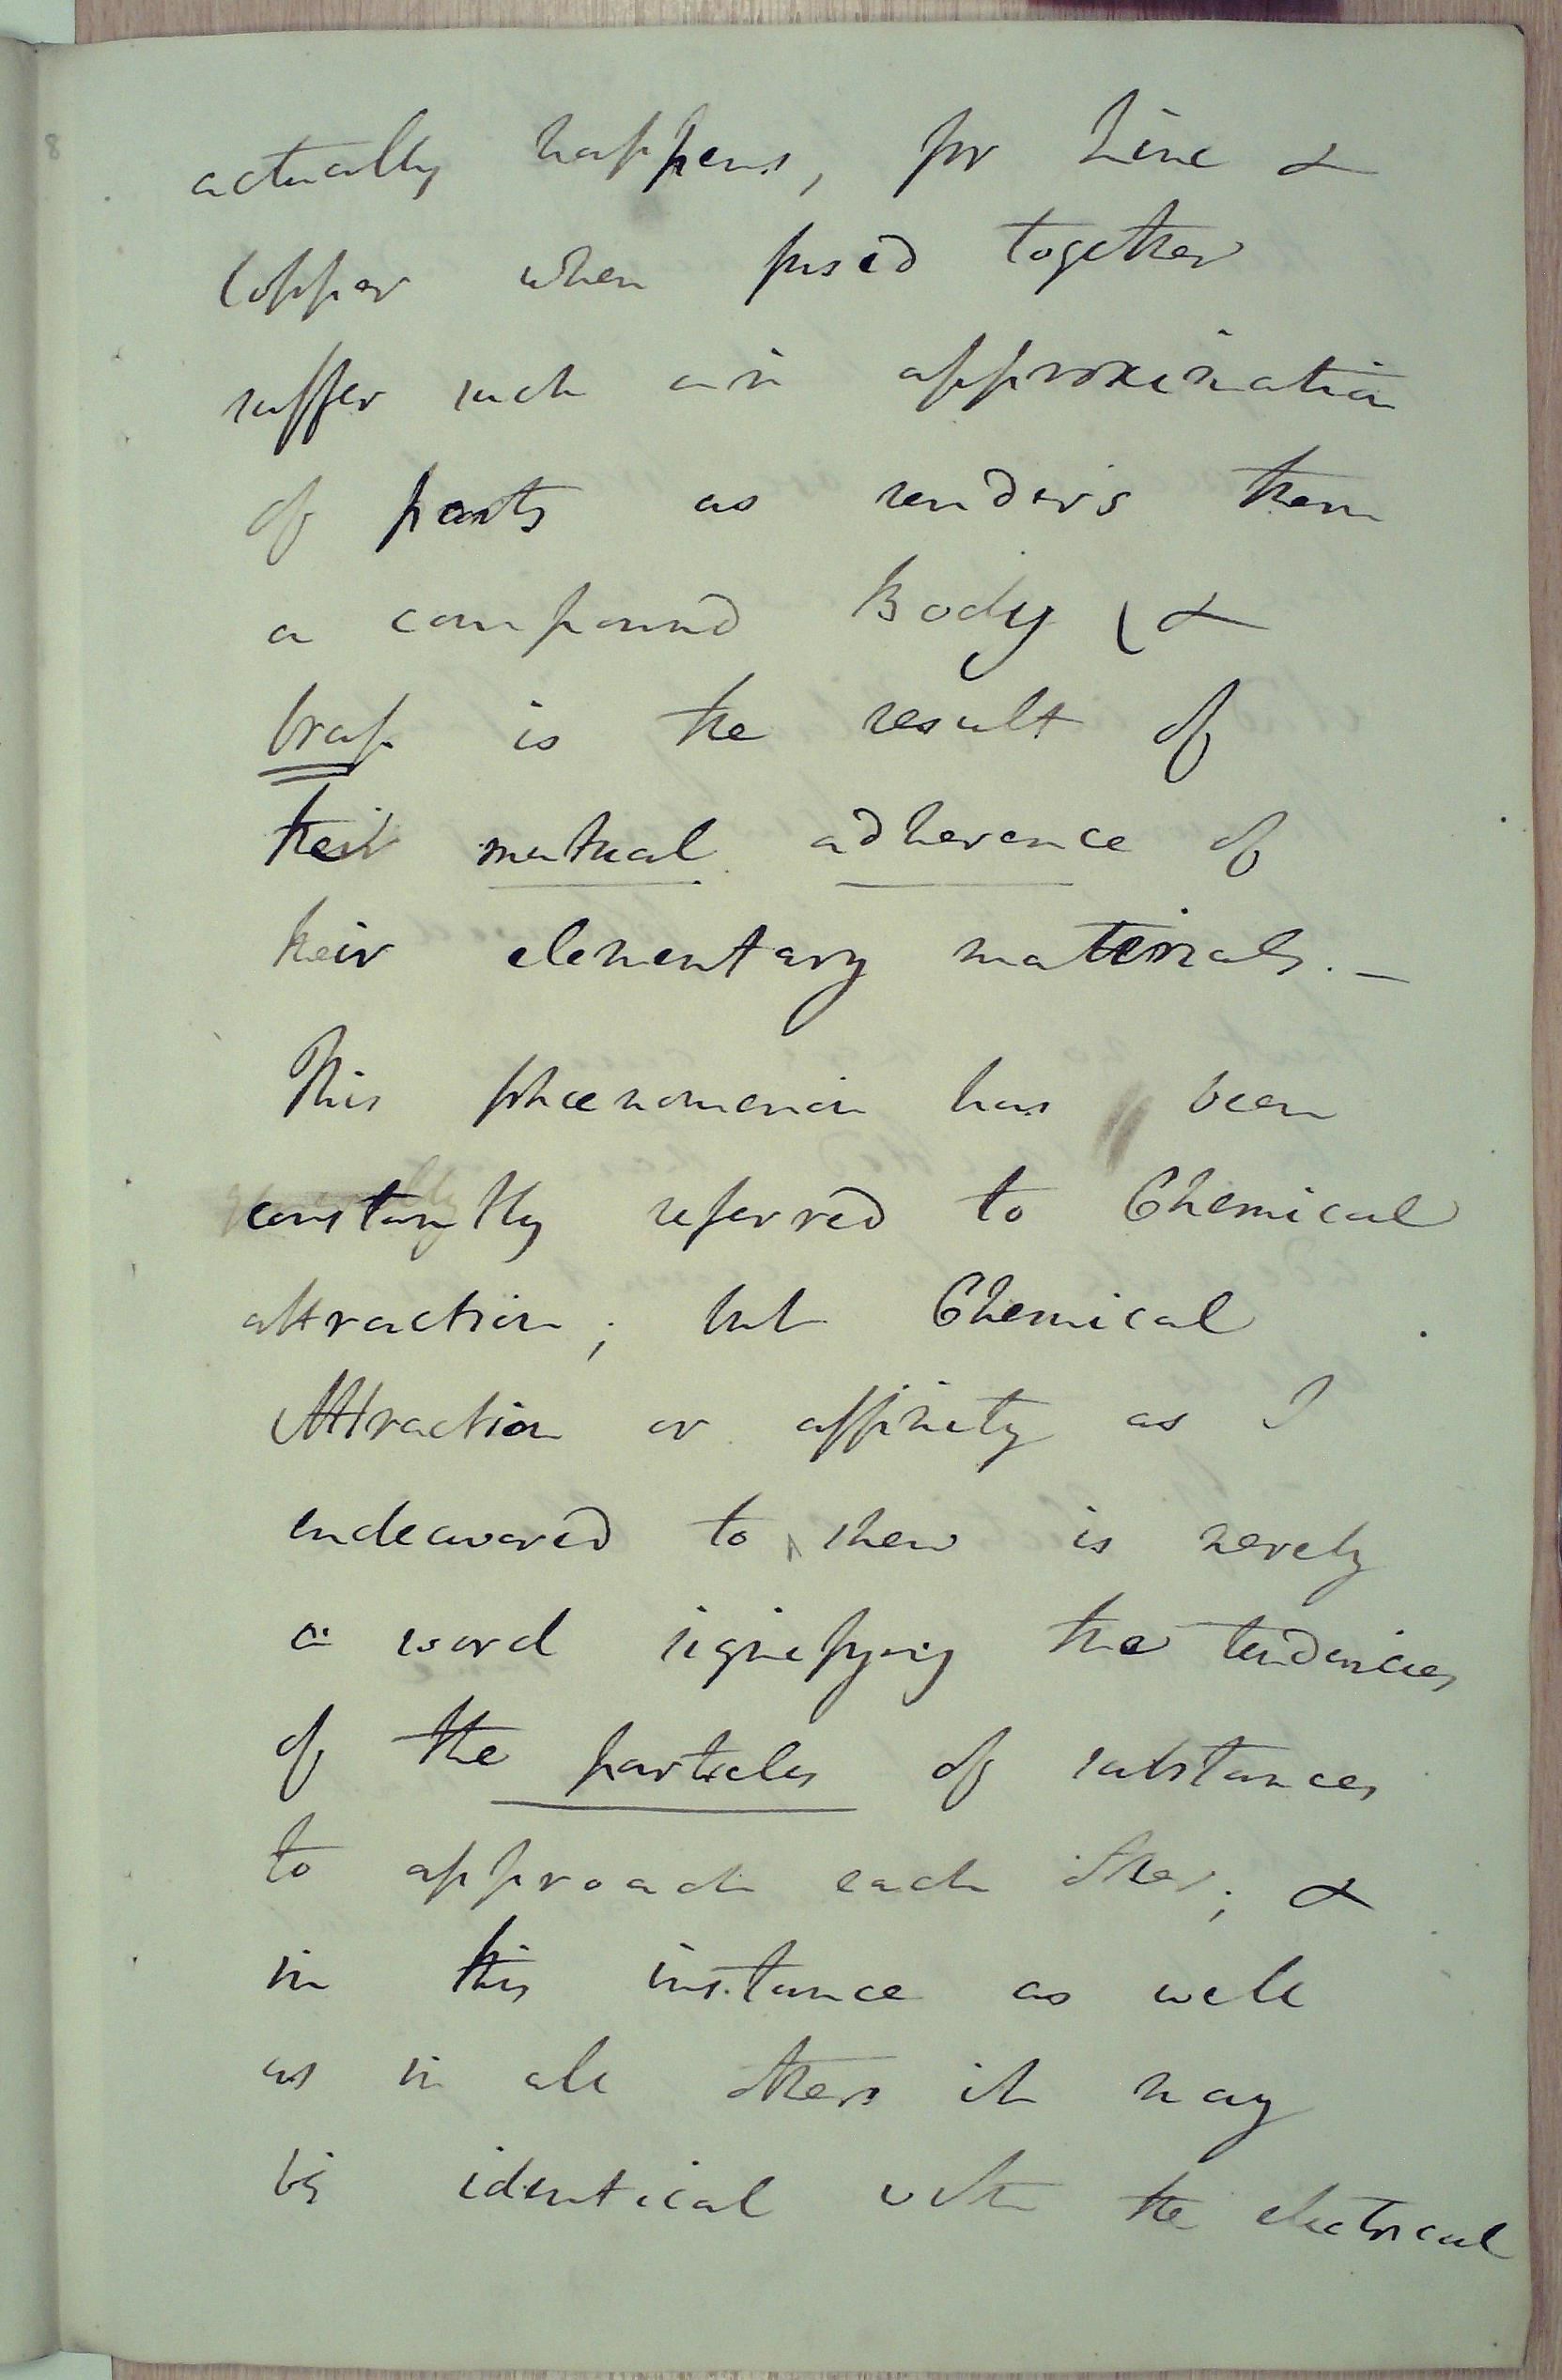 actually happens, for Zinc &
Copper when fused together
suffer such an approximation
of parts as renders them
a compound Body (&
brass is the result of
their mutual adherence of
their elementary materials. –
This phœnomenon has been
constantly referred to Chemical
attraction; but Chemical
Attraction or affinity as I
endeavored to shew is merely
a word signifying the tendencies
of the particles of substances
to approach each other; &
in this instance as well
as in all others it may
be identical with the electrical